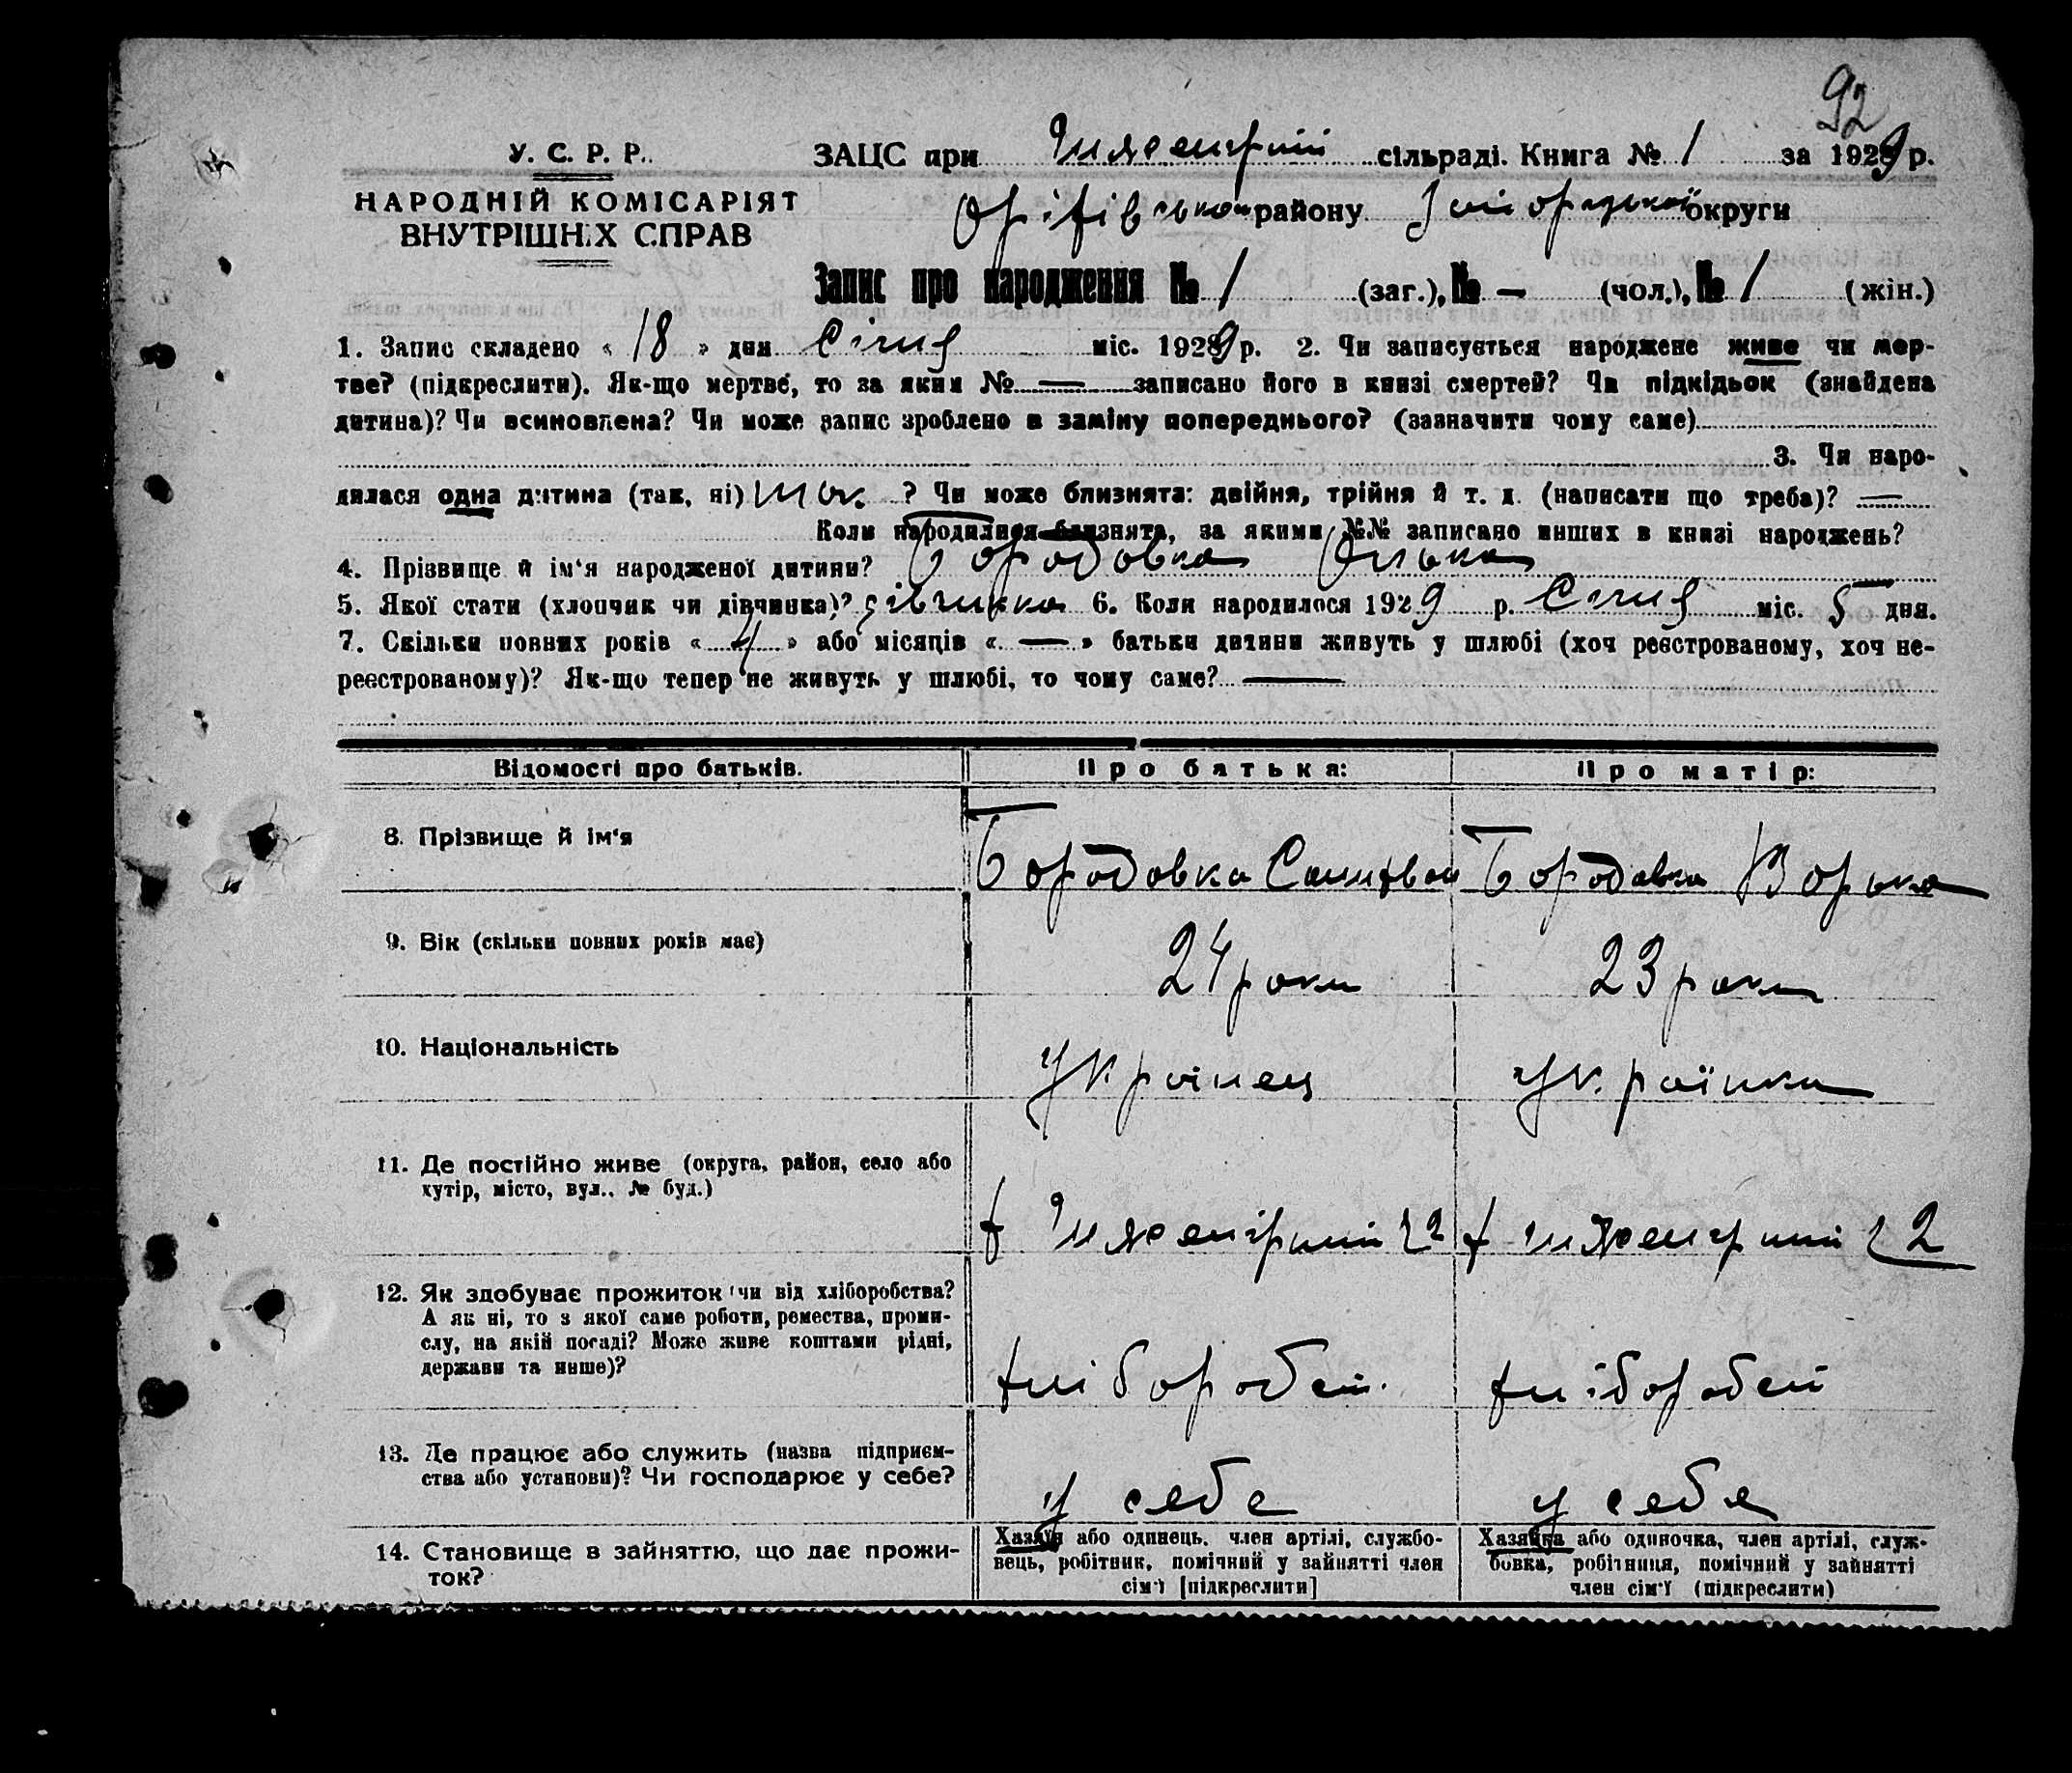 92
У. С. Р. Р.
ЗАЦС при сільраді. Книга № 1 за 1929 р.
НАРОДНІЙ КОМІСАРІЯТ
ВНУТРІШНІХ СПРАВ
району округи
Запис про народження № 1 (заг.), № — (чол.), № 1 (жін.)
1. Запис складено « 18 » дня Січня міс. 1929 р. 2. Чи записується народжене живе чи мер-
тве? (підкреслити). Як-що мертве, то за яким № — записано його в книзі смертей? Чи підкідьок (знайдена
дитина)? Чи всиновлена? Чи може запис зроблено в заміну попереднього? (зазначити чому саме)
3. Чи наро-
дилася одна дитина (так, ні) так ? Чи може близнята: двійня, трійня й т. д. (написати що треба)? —
Коли народилися близнята, за якими №№ записано инших в книзі народжень?
4. Прізвище й ім‘я народженої дитини? Бородовка Олька
5. Якої стати (хлопчик чи дівчинка)? дівчинка 6. Коли народилося 1929 р. Січня міс. 5 дня.
7. Скільки повних років « 4 » або місяців « — » батьки дитини живуть у шлюбі (хоч реєстрованому, хоч не-
реєстрованому)? Як-що тепер не живуть у шлюбі, то чому саме? —
Відомості про батьків. Про батька: Про матір:
8. Прізвище й ім‘я Бородовка БородовкаВорька
9. Вік (скільки повних років має) 24 роки 23 роки
10. Національність Украінец Українка
11. Де постійно живе (округа, район, село або
хутір, місто, вул., № буд.)
12. Як здобуває прожиток чи від хліборобства?
А як ні, то з якої саме роботи, ремества, проми-
слу, на якій посаді? Може живе коштами рідні,
держави та инше)?
хлібороб хлібороб
13. Де працює або служить (назва підприєм-
ства або установи)? Чи господарює у себе?
у себе у себе
14. Становище в зайняттю, що дає прожи-
ток?
Хазяїн або одинець, член артілі, службо-
вець, робітник, помічний у зайнятті член
сім‘ї [підкреслити]
Хазяйка або одиночка, член артілі, служ-
бовка, робітниця, помічний у зайнятті
член сім‘ї (підкреслити)